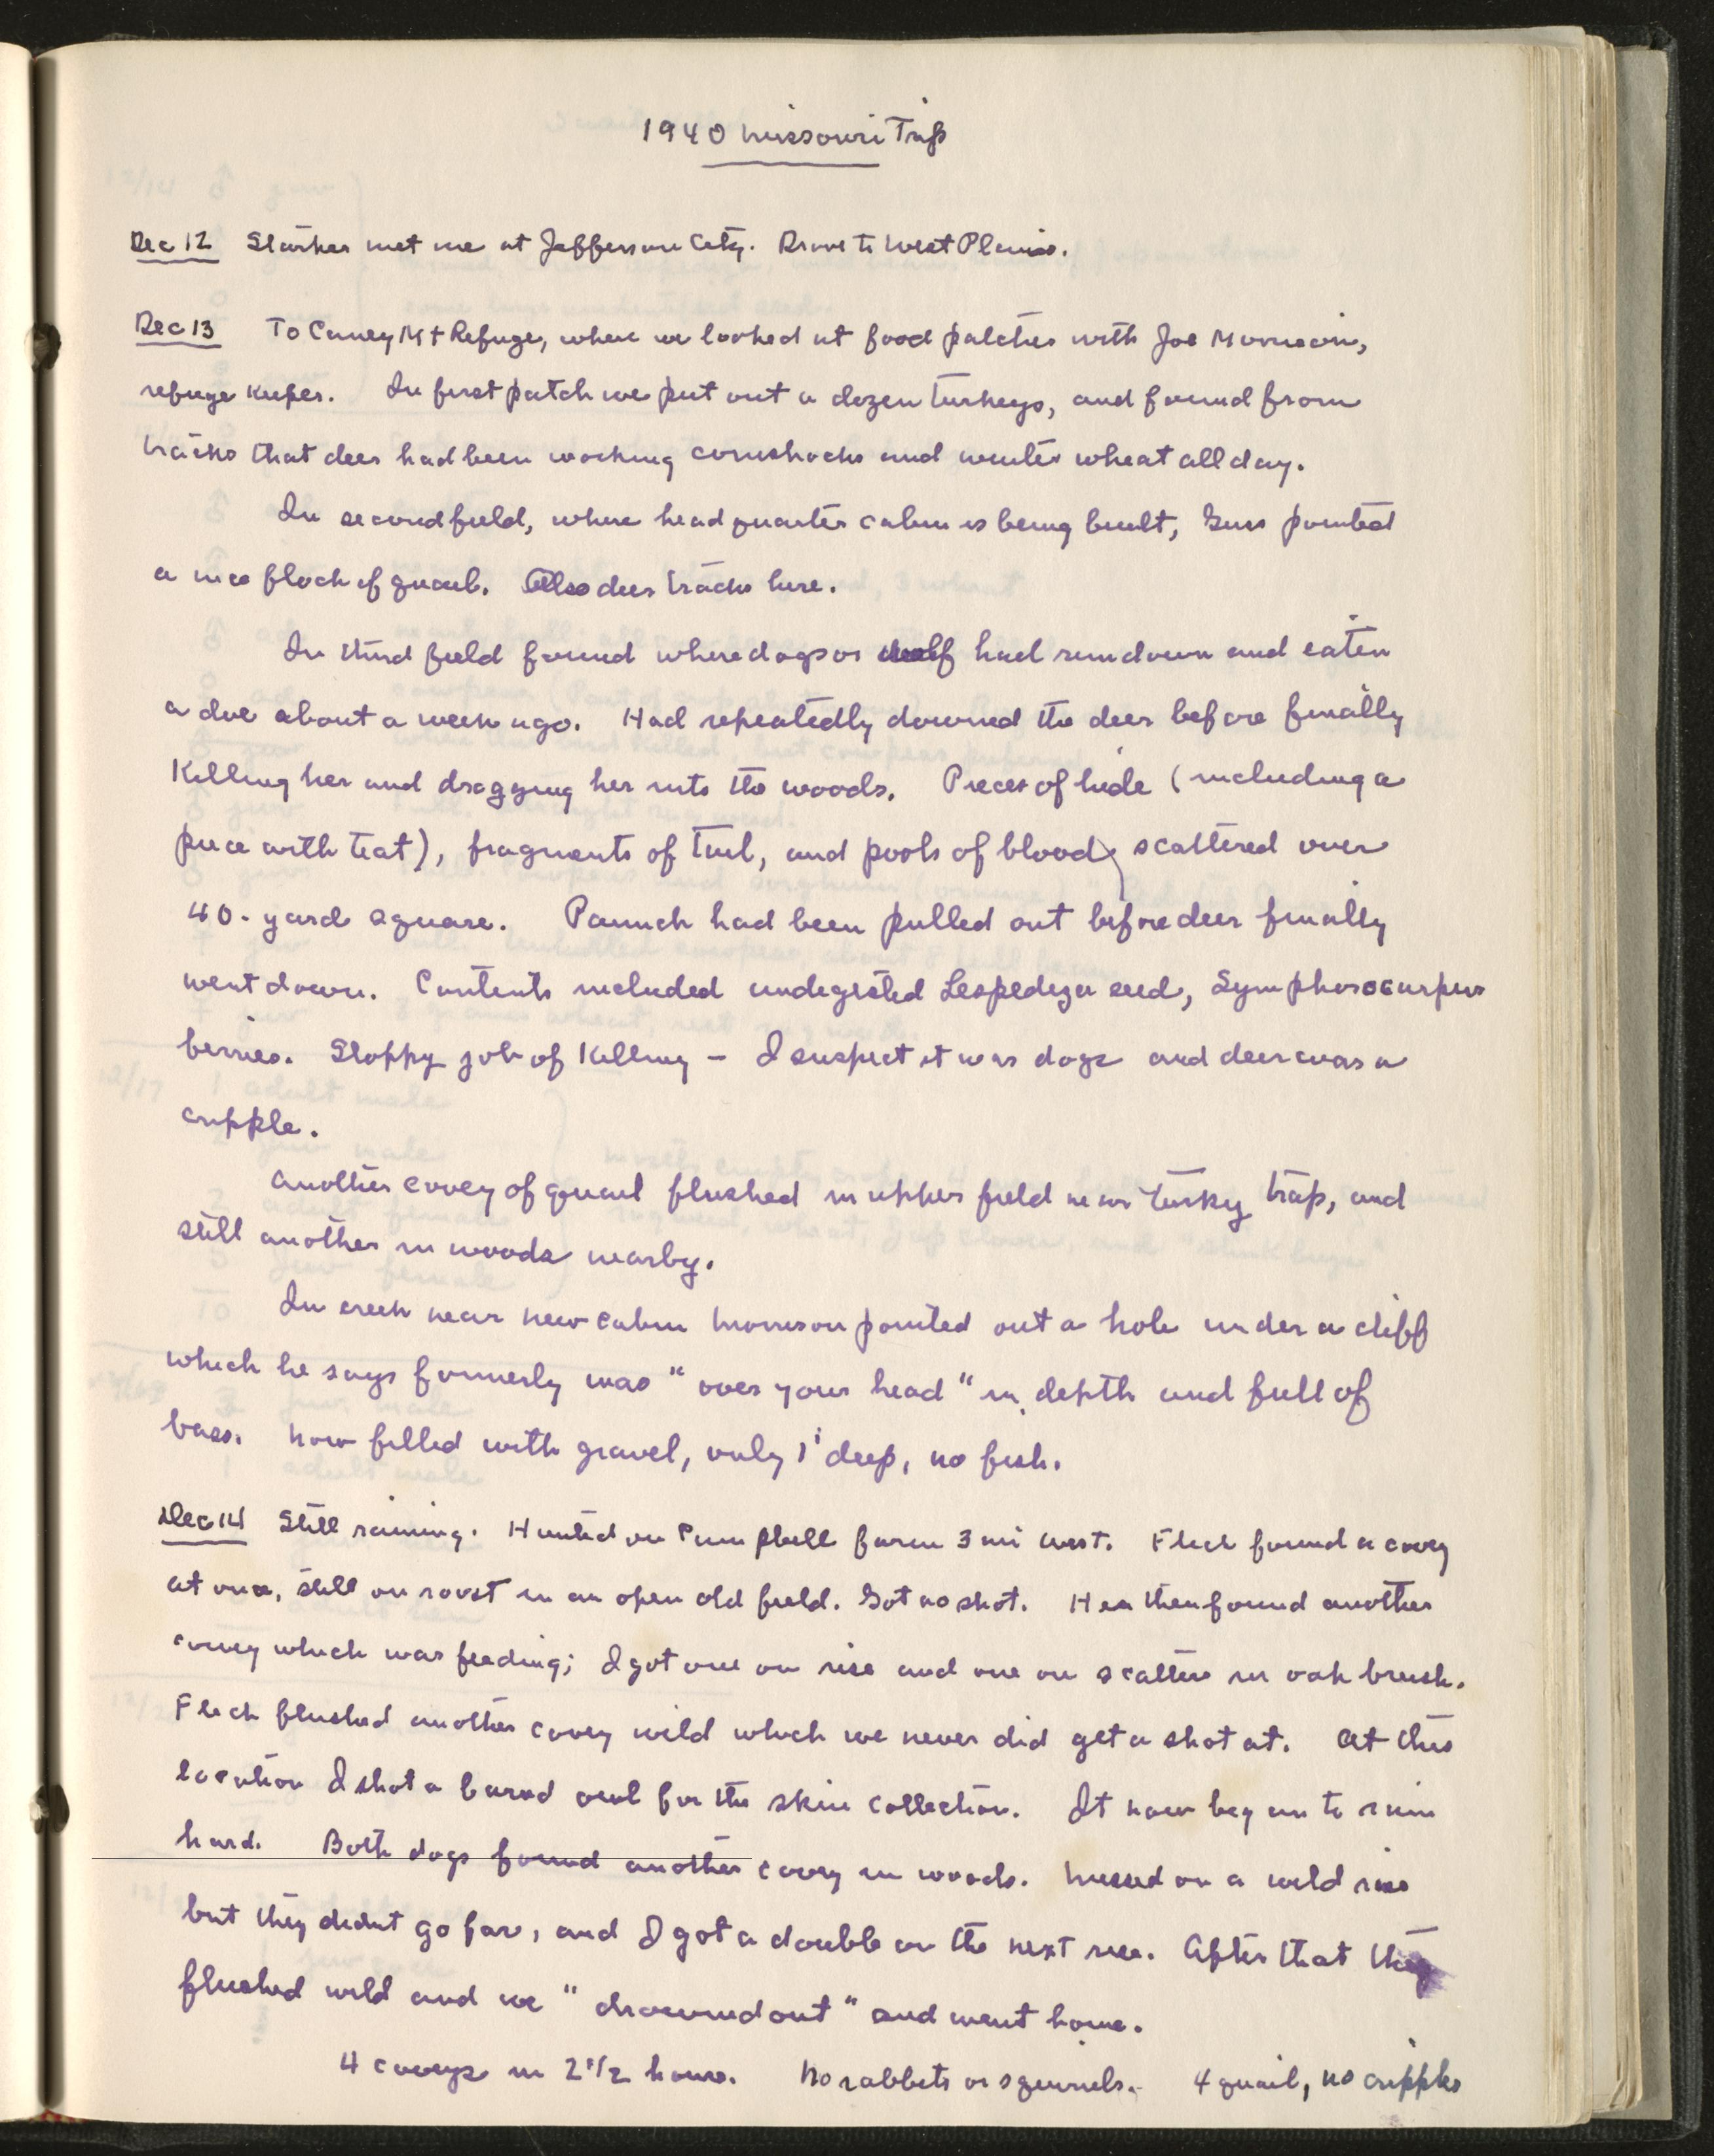 1940 Missouri Trip
Dec 12 Starker met me at Jefferson City. Drove to West Plains.
Dec 13 To Caney Mt Refuge, where we looked at food patches with Joe Morrison,
refuge keeper. In first patch we put out a dozen turkeys, and found from
tracks that deer had been working cornshocks and winter wheat all day.
In second field, where headquarter cabin is being built, Gus pointed
a nice flock of quail. Also deer tracks here.
In third field found where dogs or wolf had run down and eaten
a doe about a week ago. Had repeatedly downed the deer before finally
killing her and dragging her into the woods. Pieces of hide (including a
piece with teat), fragments of tail, and pools of blood, scattered over
40-yard square. Paunch had been pulled out before deer finally
went down. Contents included undigested Lespedeza seed, Symphorocarpus
berries. Sloppy job of killing - I suspect it was dogs and deer was a
cripple.
Another covey of quail flushed in upper field near turkey trap, and
still another in woods nearby.
In creek near new cabin Morrison pointed out a hole under a cliff
which he says formerly was "over your head" in depth and full of
bass. Now filled with gravel, only 1' deep, no fish.
Dec 14 Still raining. Hunted on Campbell farm 3 mi west. Flick found a covey
at once, still on roost in an open old field. Got no shot. He then found another
covey which was feeding; I got one on rise and one on scatter in oak brush.
Flick flushed another covey wild which we never did get a shot at. At this
location I shot a barred owl for the skin collection. It now began to rain
hard. Both dogs found another covey in woods. Missed on a wild rise
but they didnt go far, and I got a double on the next rise. After that they
flushed wild and we "drowned out" and went home.
4 coveys in 2 1/2 hours. No rabbets or squirrels. 4 quail, no cripples